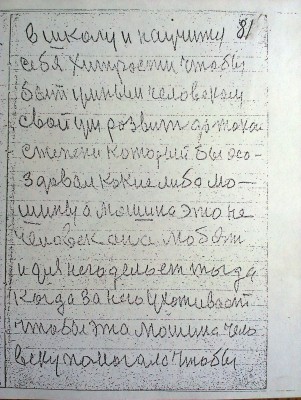 в школу и научит 81
себя хитрости чтобы
быт умным человеком
свой ум розвит до токои
степени который бы со-
здовал кокие либо мо-
шину а мошина это не
человек она может
и для него делает тогда
когда за ней ухоживает
чтобы эта мошина чело
веку помогала чтобы